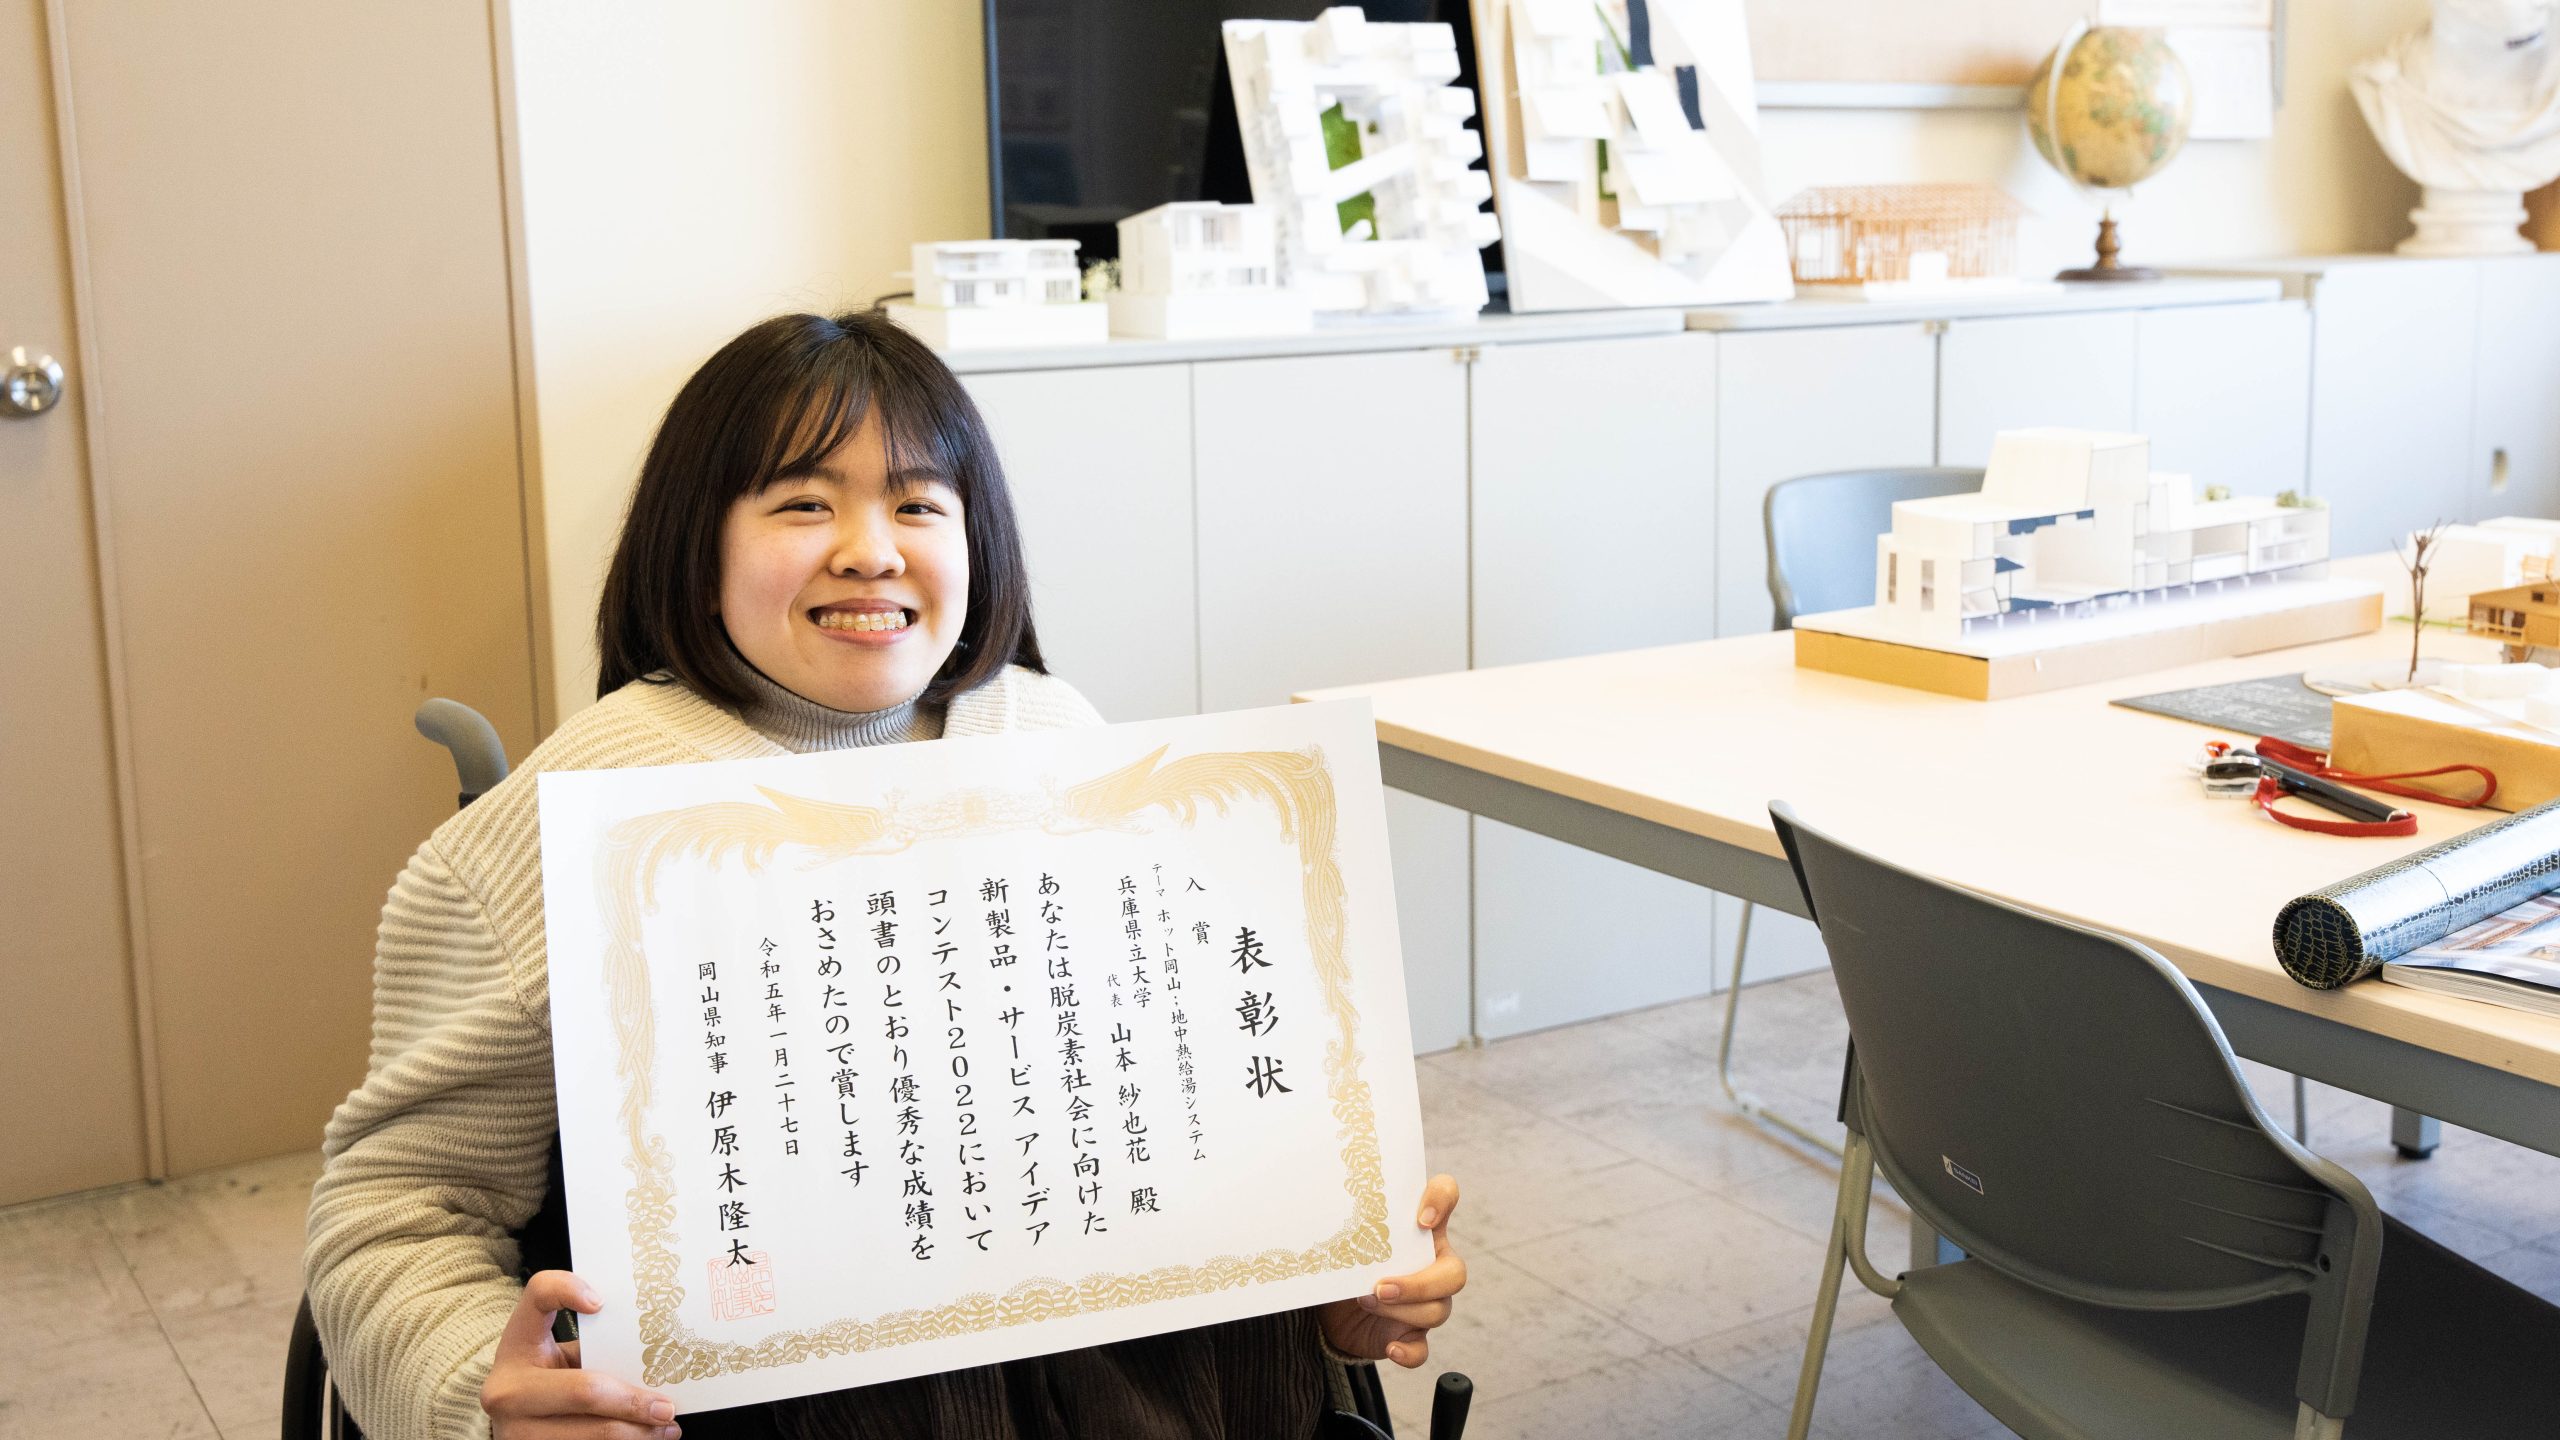 表彰状
入賞
テーマ ホット岡山；地中熱給湯システム
兵庫県立大学
代表 山本 紗也花 殿
あなたは脱炭素社会に向けた
新製品・サービス アイデア
コンテスト2022において
頭書のとおり優秀な成績を
おさめたので賞します
令和五年一月二十七日
岡山県知事 伊原木隆太